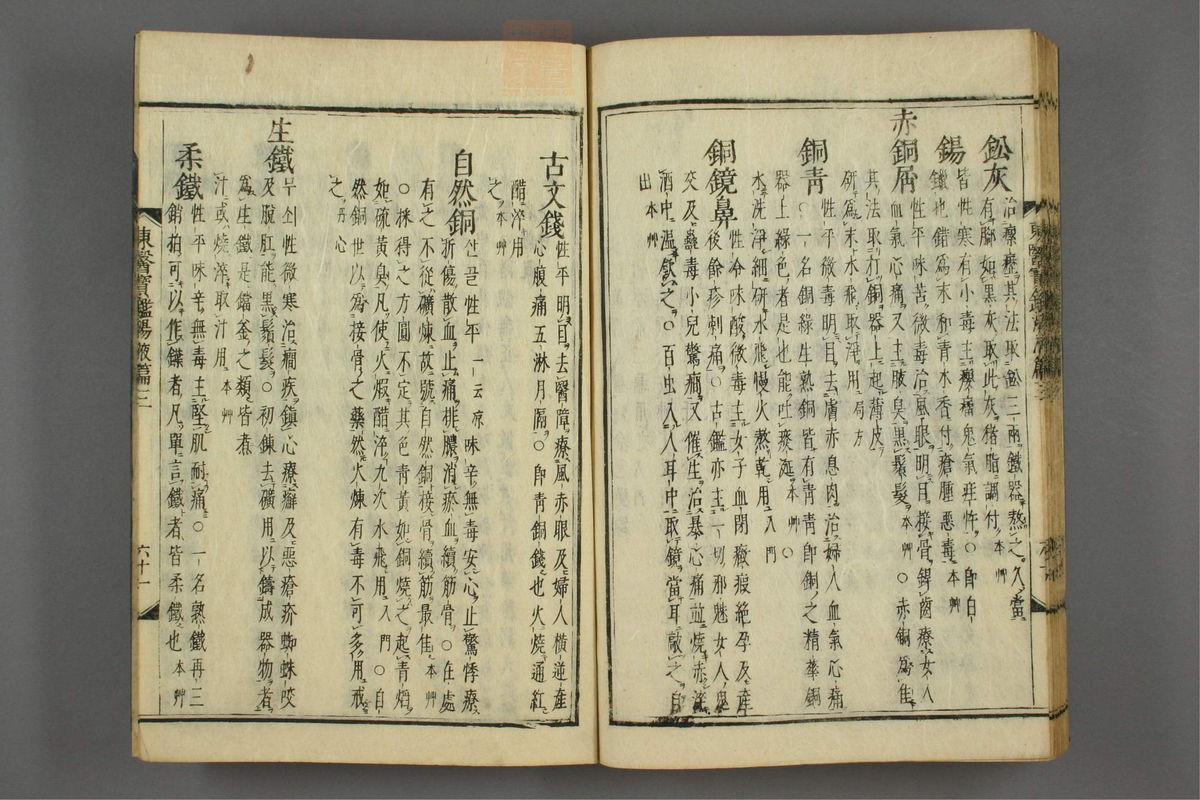 鈆灰
治瘰癧其法取鈆三兩鐵器熬之久當
有脚如黑灰取此灰猪脂調付 本艸
錫
皆性寒有小毒主癭瘤鬼氣疰忤○卽白
鑞也錯爲末和靑木香付瘡腫惡毒 本艸
赤銅屑
性平味苦微毒治風眼明目接骨銲齒療女人
血氣心痛又主腋臭黑鬚髮 本艸 ○赤銅爲佳
其法取打銅器上起薄皮
硏爲末水飛取淨用 局方
銅靑
性平微毒明目去膚赤息肉治婦人血氣心痛
○一名銅綠生熟銅皆有靑靑卽銅之精華銅
器上綠色者是也能吐痰涎 本艸 ○
水洗淨細硏水飛慢火熬乾用 入門
銅鏡鼻
性冷味酸微毒主女子血閉癥瘕絶孕及産
後餘疹刺痛○古鑑亦主一切邪魅女人鬼
交及蠱毒小兒驚癎又催生治暴心痛並燒赤淬
酒中溫飮之○百虫入人耳中取鏡當耳敲之自
出 本艸
古文錢
性平明目去瞖障療風赤眼及婦人橫逆産
心腹痛五淋月隔○卽靑銅錢也火燒通紅
醋淬用
之 本艸
自然銅
산골性平 一云凉 味辛無毒安心止驚悸療
折傷散血止痛排膿消瘀血續筋骨○在處
有之不從礦煉故號自然銅接骨續筋最佳 本艸
○採得之方圓不定其色靑黃如銅燒之起靑焰
如硫黃臭凡使火煆醋淬九次水飛用 入門 ○自
然銅世以爲接骨之藥然火煉有毒不可多用戒
之 丹心
生鐵
무쇠性微寒治癎疾鎭心療癬及惡瘡疥蜘蛛咬
及脫肛能黑鬚髮○初鍊去礦用以鑄成器物者
爲生鐵是鐺釜之類皆煮
汁或燒淬取汁用 本艸
柔鐵
性平味辛無毒主堅肌耐痛○一名熟鐵再三
銷拍可以作鍱者凡單言鐵者皆柔鐵也 本艸
東醫寶鑑湯液篇三
六十一